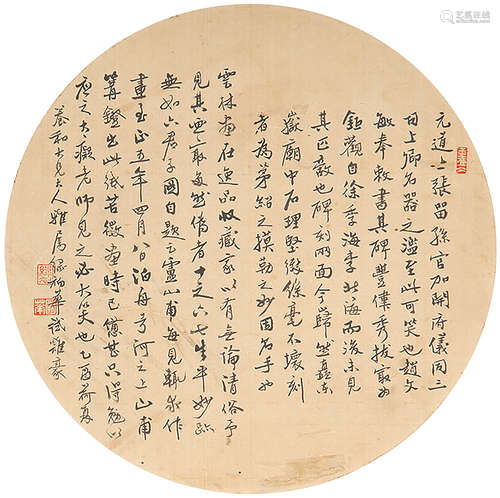 艺狐在线
元道士張留孫官加開府儀同三
司上卿名器之濫至此可笑也趙文
敏奉敕書其碑豐偉秀拔最為
鉅觀自徐季海李北海而後未見
其匹敵也碑刻兩面今歸然矗東
嶽廟中石理堅緻條毫不壞刻
者為茅紹之摸勒之妙固名手也
雲林畫在逸品收藏家以有無論清俗予
見其画最多然偽者十之六七生平妙跡
無如六君子圖自題云盧山甫每見輒求作
畫至正五年四月八日泊舟弓河之上山甫
篝鐙出此紙苦徵畫時已憊甚只得勉以
應之大癡老師見之必大笑也乙酉荷夏
養和大兄大人雅屬 試雞豪